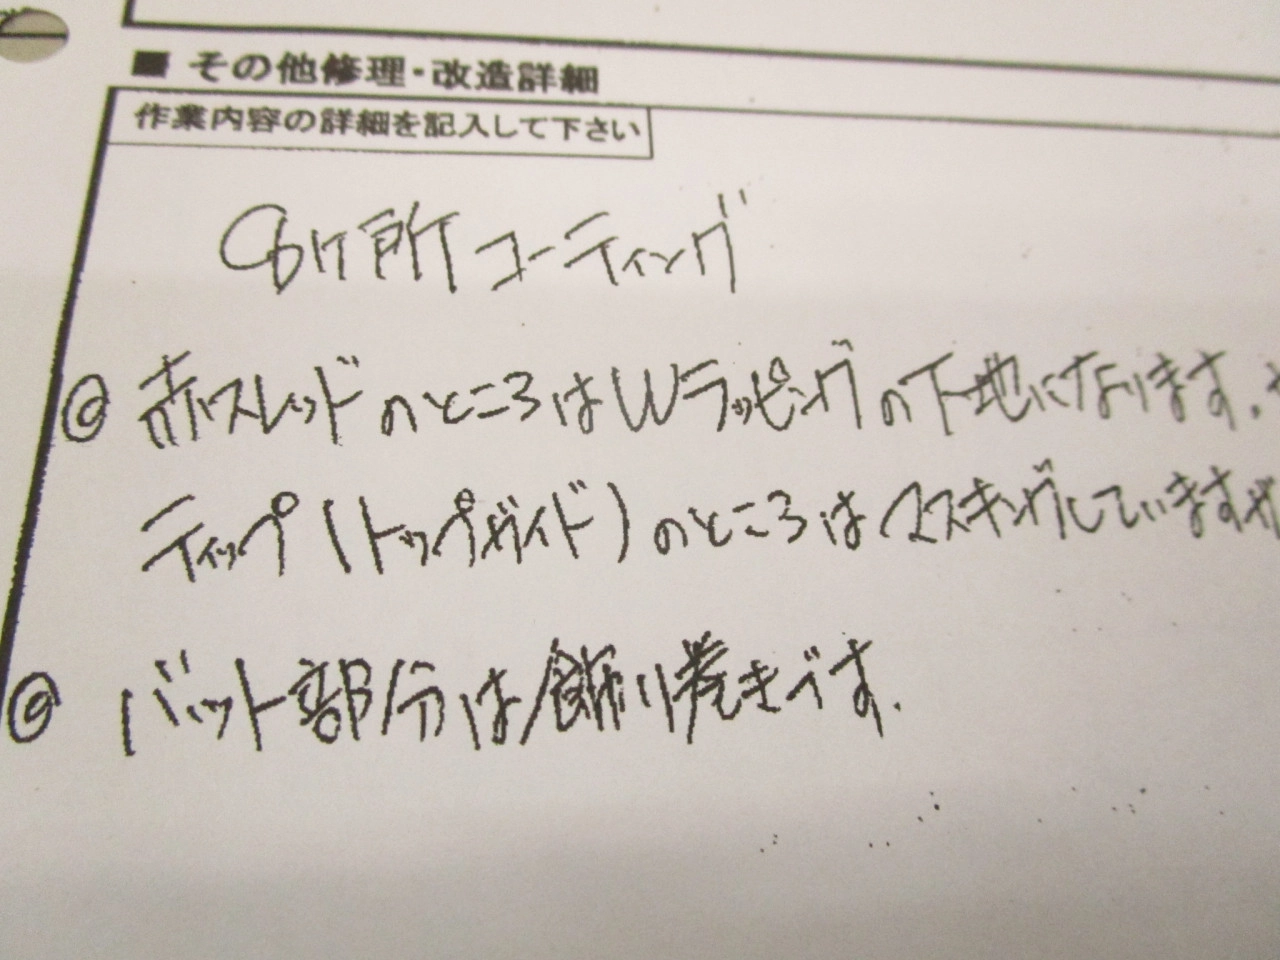 ■ その他修理・改造詳細
作業内容の詳細を記入して下さい
ヶ所コーティング
◎ 赤スレッドのところはWラッピングの下地になります。
ティップ(トップガイド)のところはマスキングしていますが
◎ バット部分は飾り巻きです.